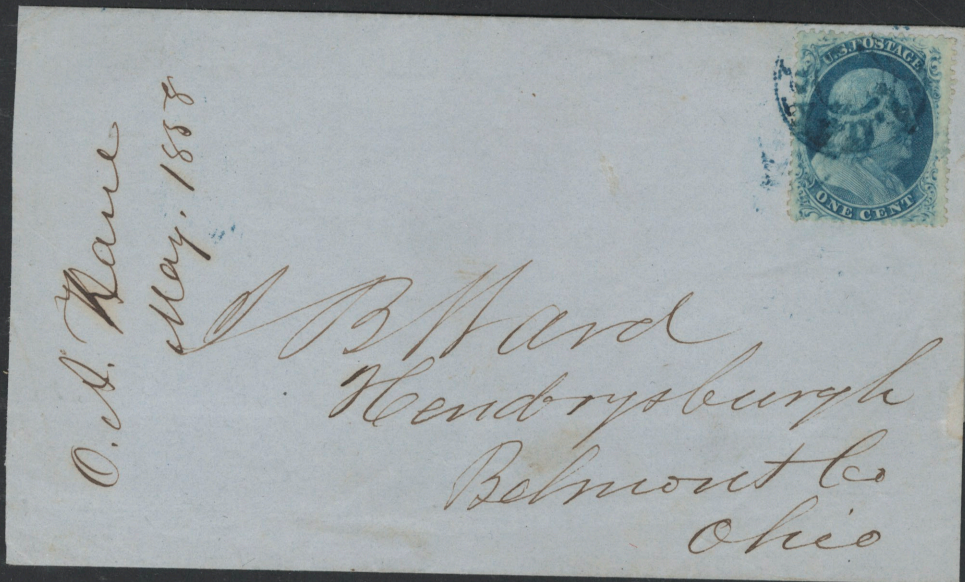 U.S. POSTAGE
ONE CENT
O. A.
May. 1858
J B Ward
Hendrysburgh
Belmont Co
Ohio